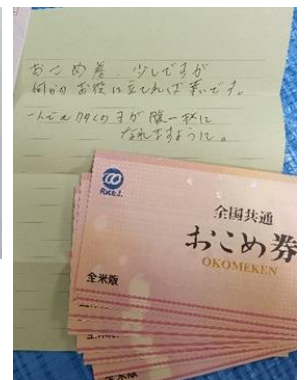 おこめ券、少しですが
何かの お役に立てれば幸いです。
一人でも多くの子が 腹一杯に
なれますように。
Rice J.
全国共通
おこめ券
OKOMEKEN
全米販